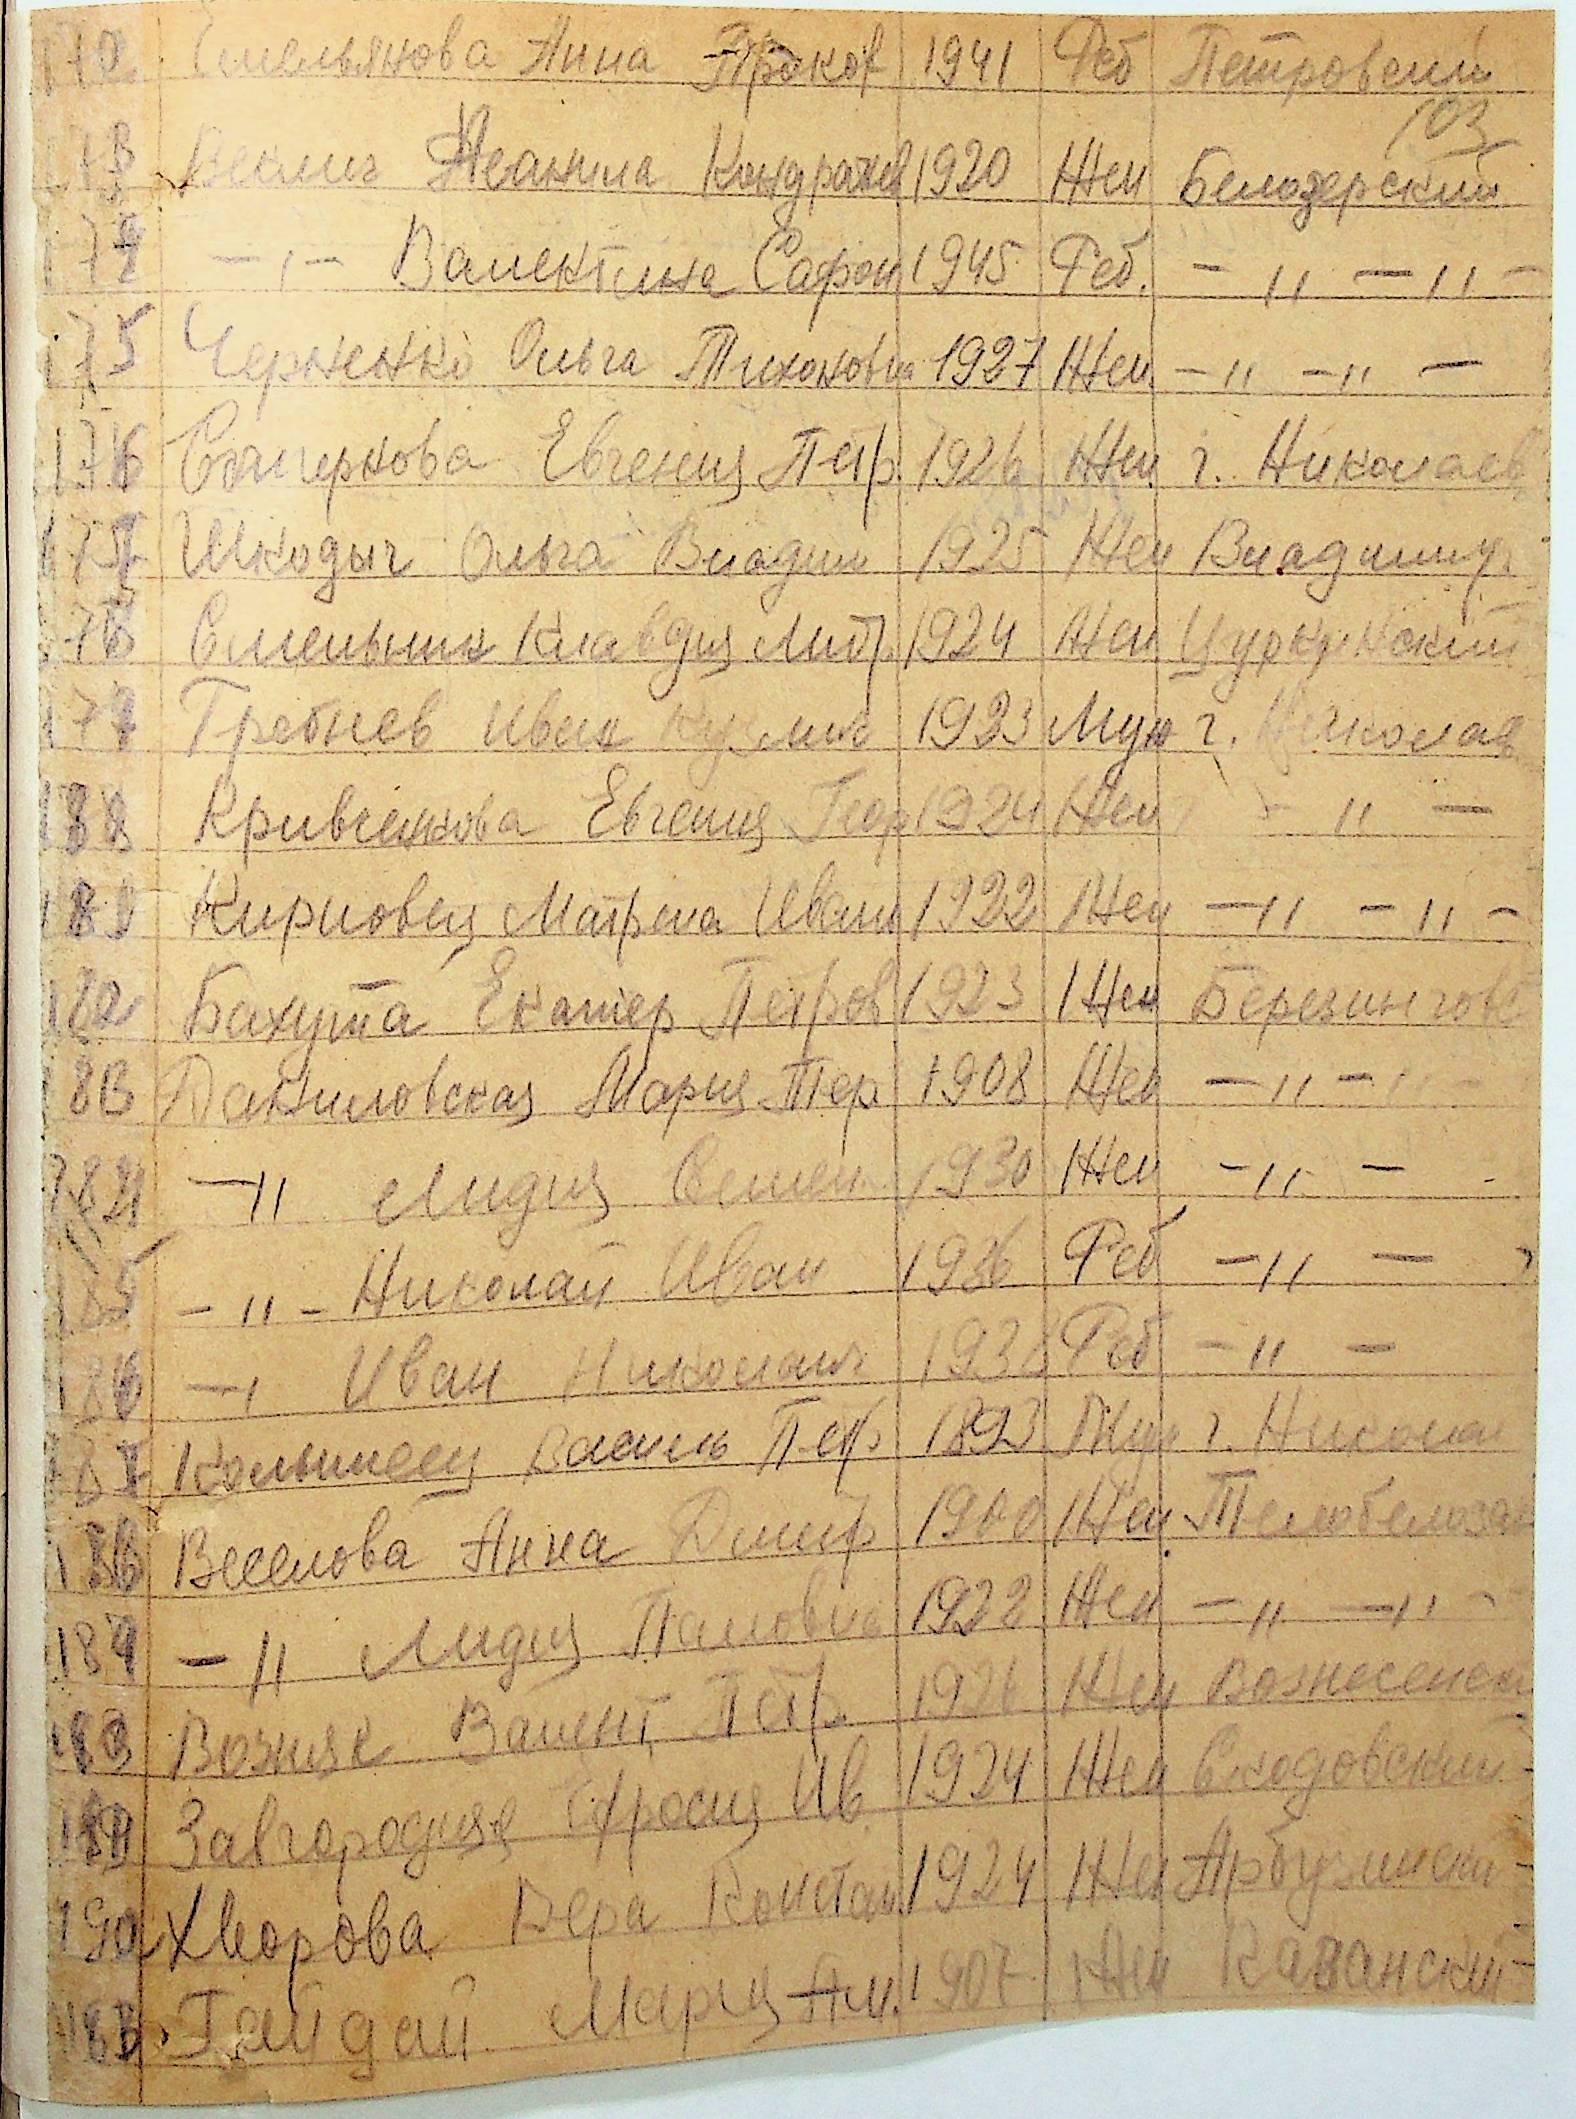 172 Емельянова Анна Проков 1941 Реб Петровский
103
173 Веклич Неанила Кондратьев 1920 Жен Белозерский
174 -,- Валентина Сафон 1945 Реб. - „ - „ -
175 Черненко Ольга Тихоновна 1927 Жен. - „ - „ -
176 Евгения Петр. 1926 Жен г. Николаев
Шкодыч Ольга Владим 1925 Жен Владимир
178 Смельник Клавдия Митр. 1924 Жен
179 Гребнев Иван Кузмич 1923 Муж г. Николаев
Кривченкова Евгения Геор 1924 Жен - „ -
Кирповец Матрена Иван 1922 Жен - „ - „ -
182 Бахута Екатер Петров 1923 Жен Березнигов
183 Даниловская Мария Тер 1908 Жен - „ - „ -
184 - „ Лидия Семен. 1930 Жен - „ -
185 - „ - Николай Иван 1936 Реб - „ -
186 - „ Иван Николаич 1938 Реб - „ -
187 Василь Петр. 1893 Муж г. Никола
188 Веселова Анна Дмитр 1900 Жен
189 - „ Лидия Павловна 1922 Жен - „ - „ -
Возняк Валент Петр. 1926 Жен Вознесенск
Завгородняя Ефросия Ив 1924 Жен
190 Хворова Вера Констан. 1924 Жен Арбузински
Гайдай Мария Ам. 1907 Жен Казанский